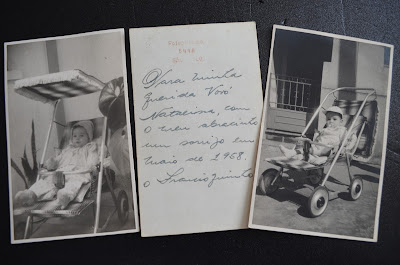 Para minha
querida Vovó
Natalina, com
o meu abracinho
um sorriso em
maio de 1968.
o Francisquinho